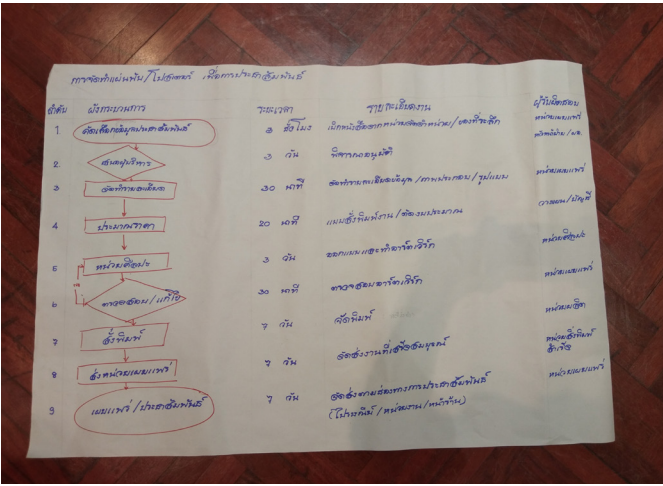 การจัดทำแผ่นพับ/โปสเตอร์ เพื่อการประชาสัมพันธ์
ลำดับ ผังกระบวนการ ระยะเวลา รายละเอียดงาน ผู้รับผิดชอบ
1. คัดเลือกข้อมูลประชาสัมพันธ์ 3 ชั่วโมง หน่วยเผยแพร่
2. เสนอผู้บริหาร 3 วัน พิจารณาอนุมัติ
3 จัดทำรายละเอียด 30 นาที จัดทำรายละเอียดข้อมูล/ภาพประกอบ/รูปแบบ หน่วยเผยแพร่
4 ประมาณราคา 20 นาที แบบสั่งพิมพ์งาน/ตั้งงบประมาณ วางแผน/บัญชี
5 หน่วยศิลปะ 3 วัน ออกแบบและทำอาร์ตเวิร์ก หน่วยศิลปะ
6 ตรวจสอบ/แก้ไข 30 นาที ตรวจสอบอาร์ตเวิร์ก หน่วยเผยแพร่
7 สั่งพิมพ์ 7 วัน จัดพิมพ์ หน่วยผลิต
8 ส่งหน่วยเผยแพร่ 7 วัน จัดส่งงานที่เสร็จสมบูรณ์ หน่วยสิ่งพิมพ์
สำเร็จ
9 เผยแพร่/ประชาสัมพันธ์ 7 วัน จัดส่งตามช่องทางการประชาสัมพันธ์ หน่วยเผยแพร่
(ไปรษณีย์/หน่วยงาน/หน้าร้าน)